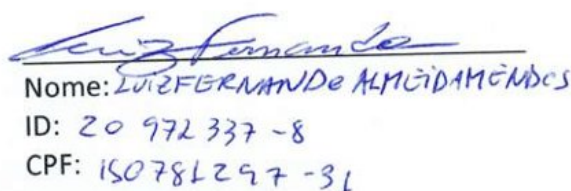 Luiz Fernando
Nome: LUIZ FERNANDO ALMEIDA MENDES
ID: 20 972 337 -8
CPF: 150781297-31